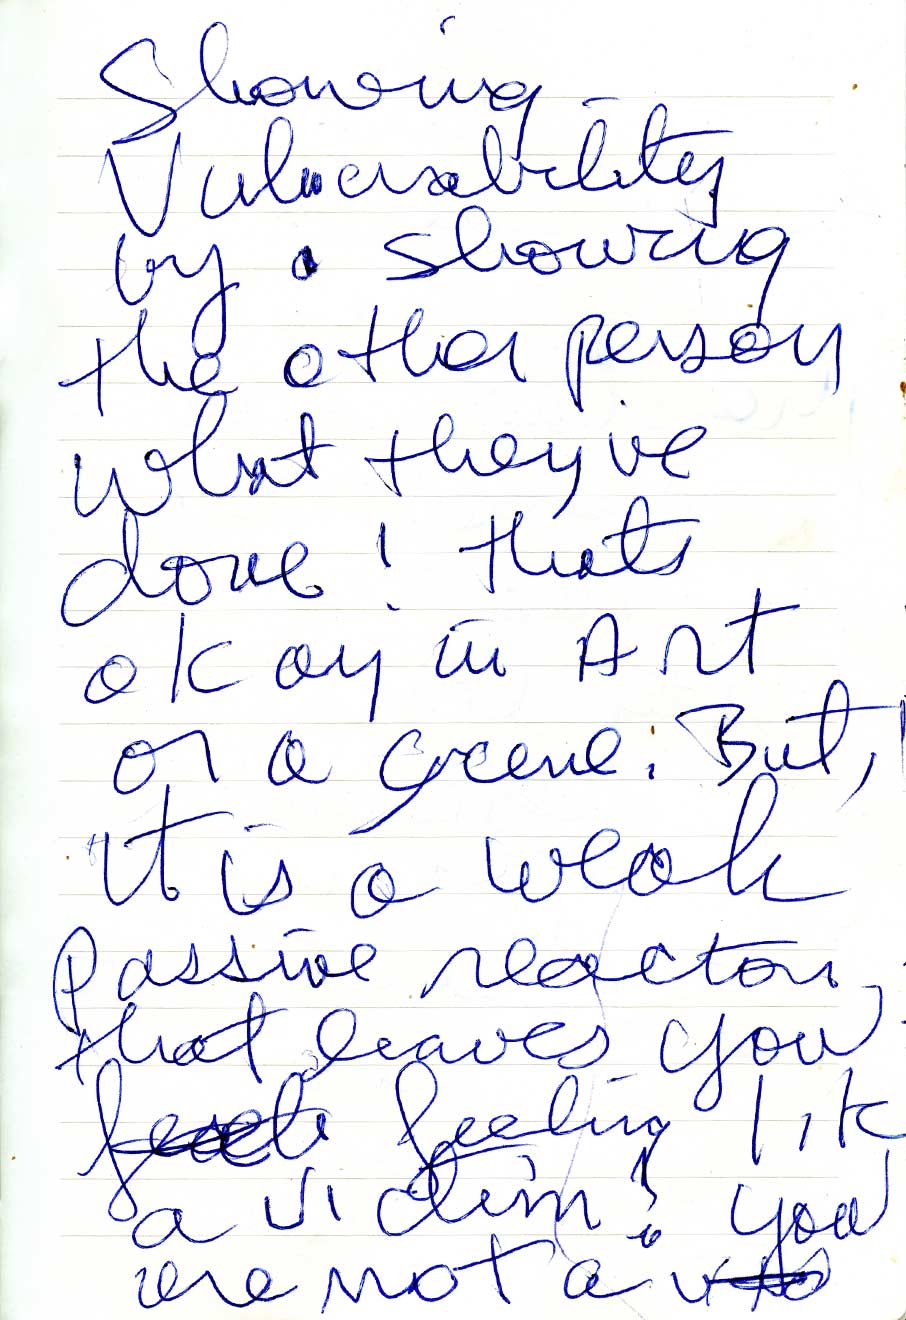 Showing
Vulnerability
by showing
the other person
what they've
done! thats
okay in Art
or a scene. But,
It is a weak
Passive reaction,
that leaves you
feeling lik
a victim! you
are not a